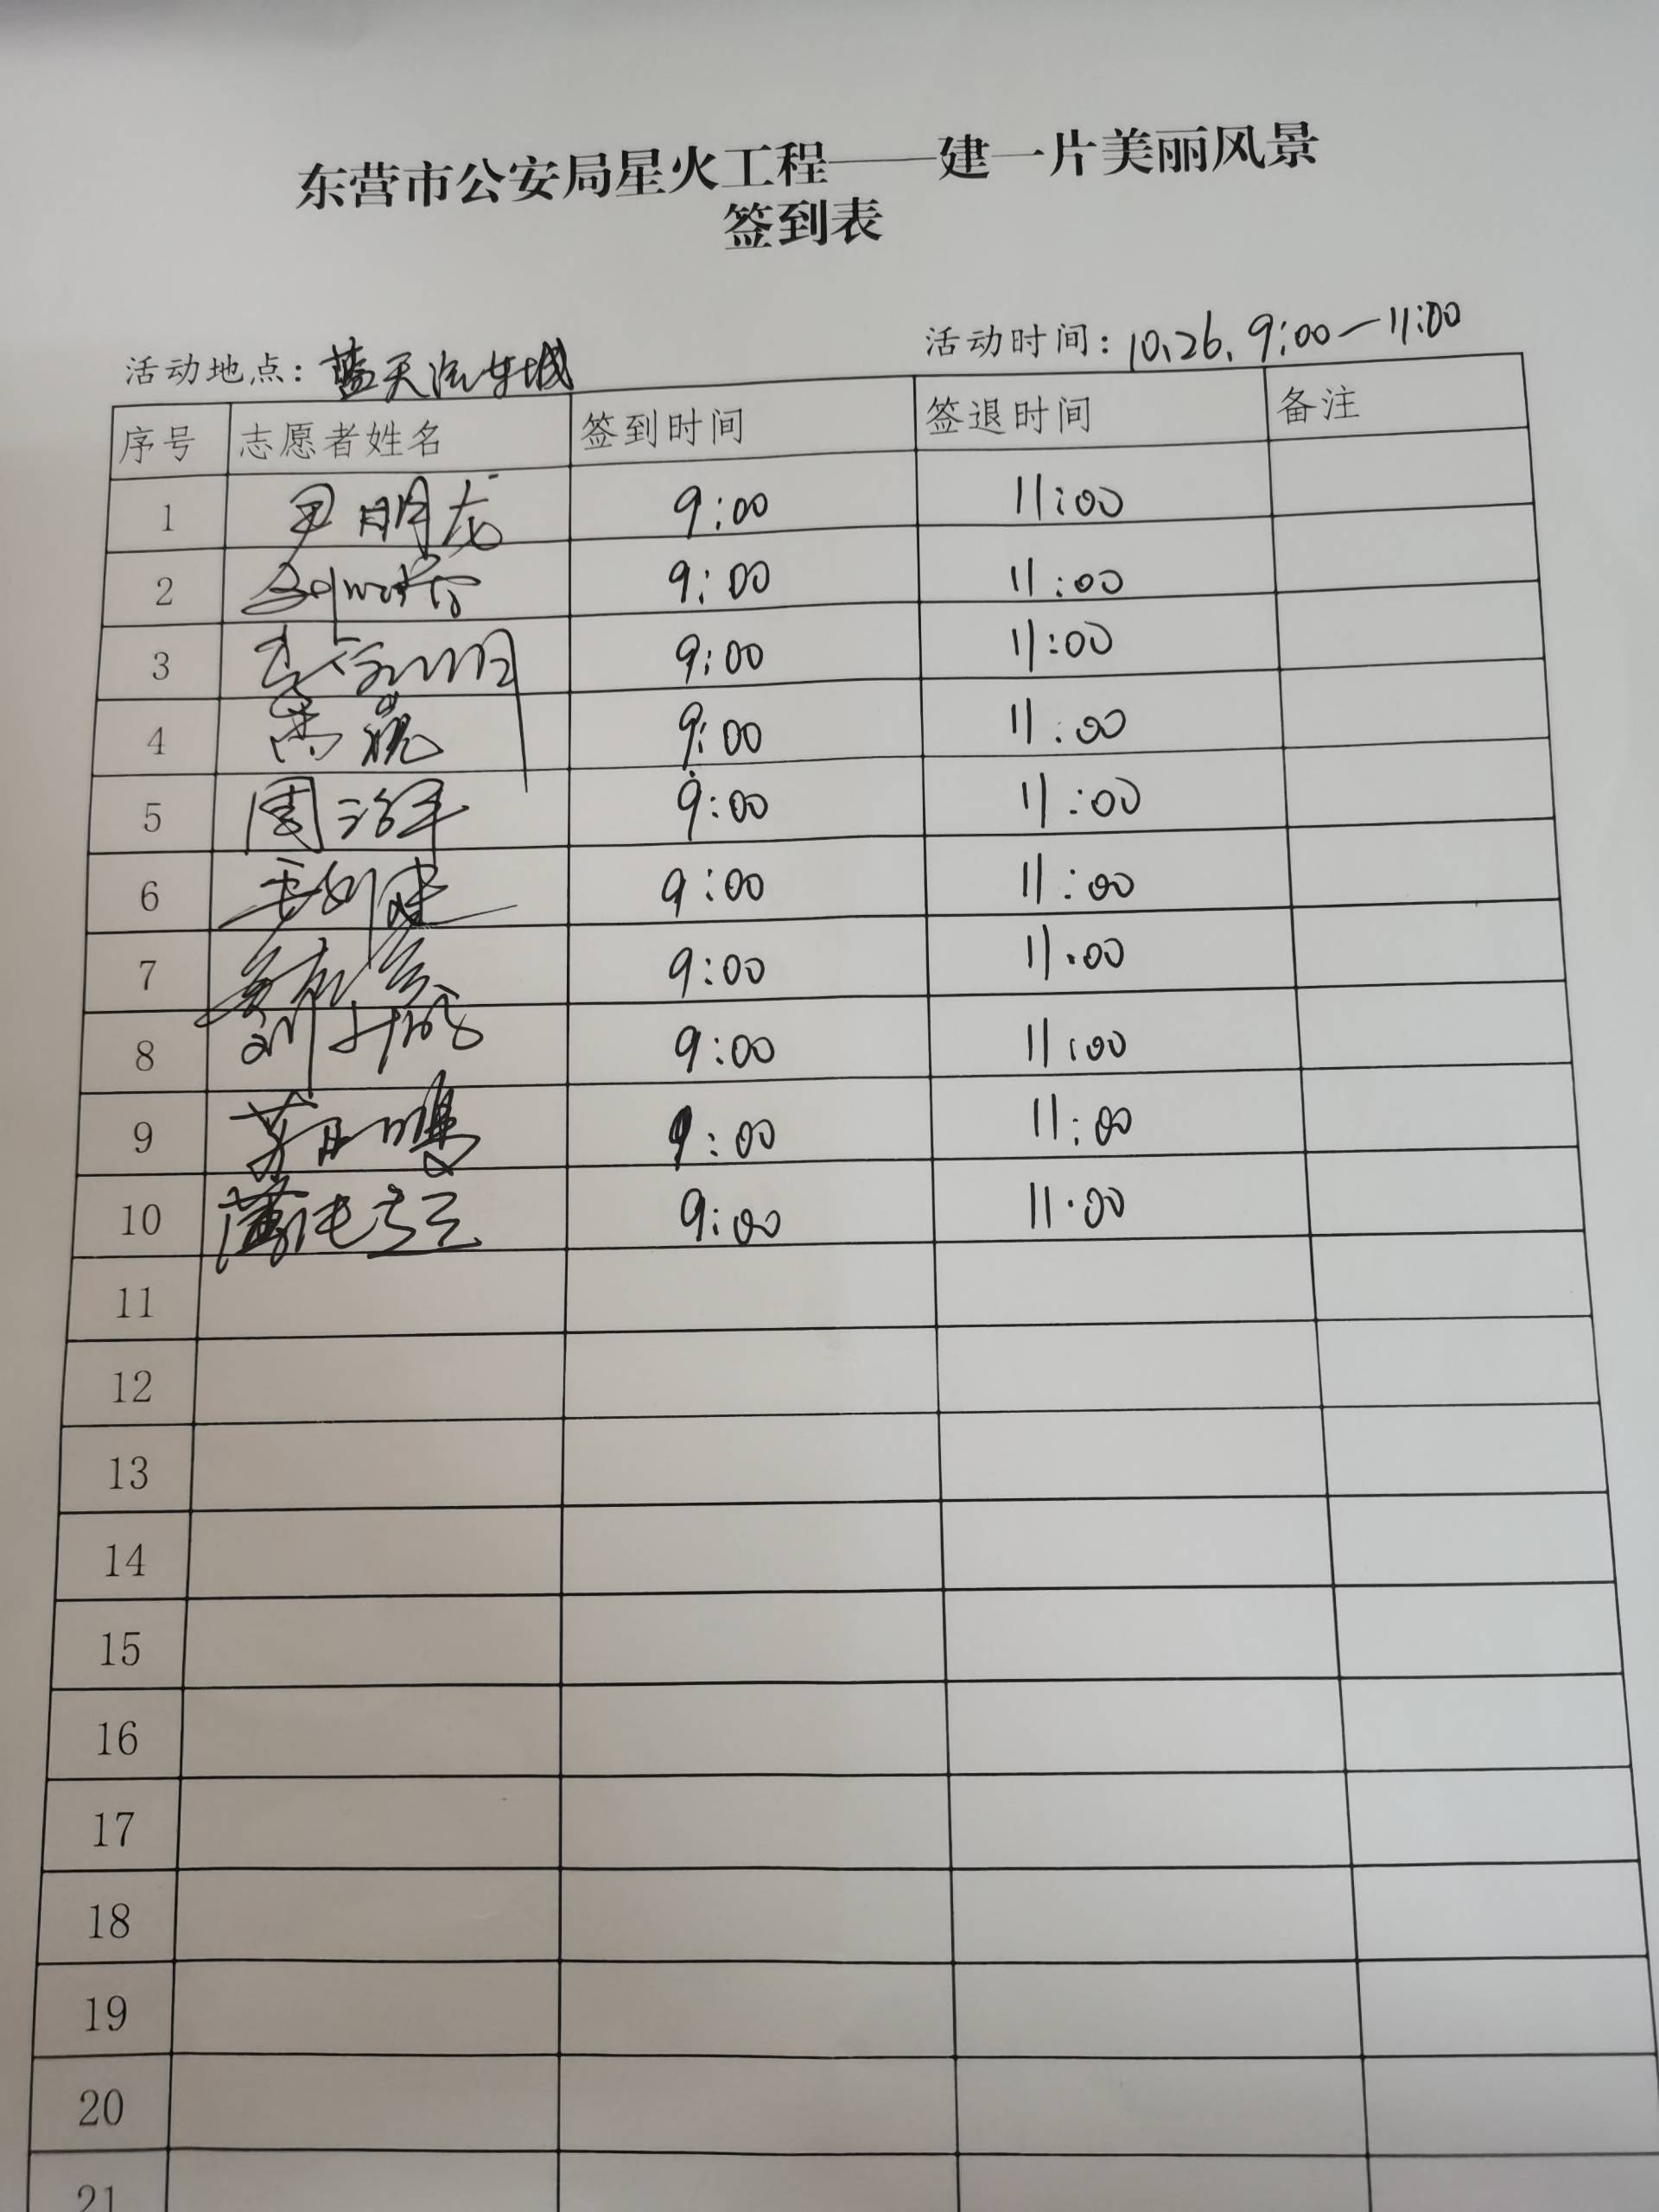 东营市公安局星火工程——建一片美丽风景
签到表
活动地点：蓝天汽车城 活动时间：10.26. 9:00—11:00
序号 志愿者姓名 签到时间 签退时间 备注
1 尹明龙 9:00 11:00
2 9:00 11:00
3 9:00 11:00
4 9:00 11:00
5 周治军 9:00 11:00
6 9:00 11:00
7 9:00 11:00
8 9:00 11:00
9 9:00 11:00
10 9:00 11:00
11
12
13
14
15
16
17
18
19
20
21